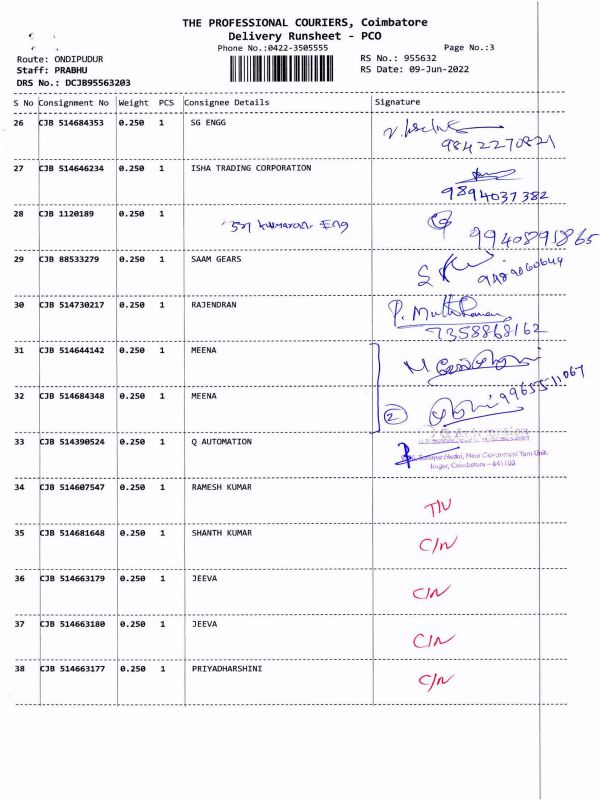 THE PROFESSIONAL COURIERS, Coimbatore
Delivery Runsheet - PCO
Phone No.:0422-3505555 Page No.:3
Route: ONDIPUDUR RS No.: 955632
Staff: PRABHU RS Date: 09-Jun-2022
DRS No.: DCJB95563203
S No Consignment No Weight PCS Consignee Details Signature
26 CJB 514684353 0.250 1 SG ENGG
9842270821
27 CJB 514646234 0.250 1 ISHA TRADING CORPORATION
9894037382
28 CJB 1120189 0.250 1
Eng
9940891865
29 CJB 88533279 0.250 1 SAAM GEARS
30 CJB 514730217 0.250 1 RAJENDRAN
7358868162
31 CJB 514644142 0.250 1 MEENA
32 CJB 514684348 0.250 1 MEENA
2
33 CJB 514390524 0.250 1 Q AUTOMATION
Near Government Yarn Unit,
Irugur, Coimbatore – 641103
34 CJB 514607547 0.250 1 RAMESH KUMAR
35 CJB 514681648 0.250 1 SHANTH KUMAR
C/N
36 CJB 514663179 0.250 1 JEEVA
C/N
37 CJB 514663180 0.250 1 JEEVA
C/N
38 CJB 514663177 0.250 1 PRIYADHARSHINI
C/N